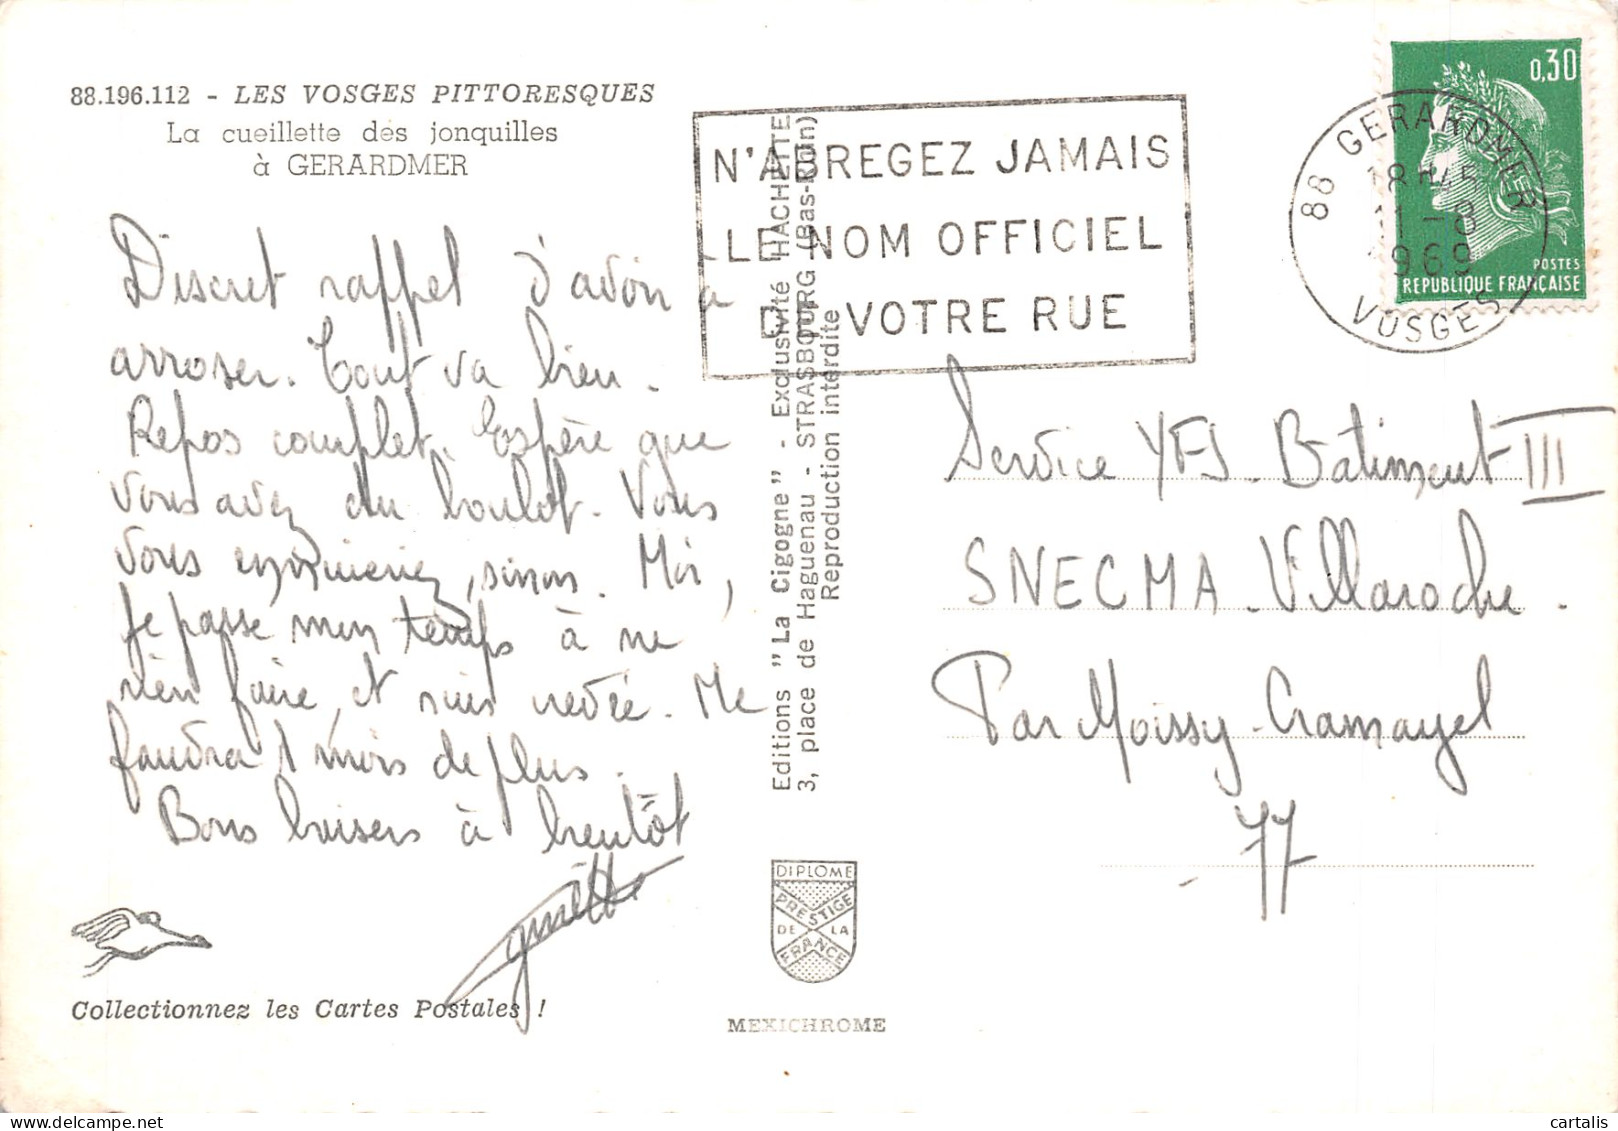 88.196.112 - LES VOSGES PITTORESQUES
La cueillette des jonquilles
à GERARDMER
Discret rappel d'avoir à
arroser. Tout va bien.
Repos complet. Espère que
vous avez du boulot. Vous
vous ennuieriez, sinon. Moi,
je passe mon temps à ne
rien faire, et suis crevée. Me
faudra 1 mois de plus.
Bons baisers à bientôt
Collectionnez les Cartes Postales !
Editions "La Cigogne" - Exclusivité HACHETTE
3, place de Haguenau - STRASBOURG (Bas-Rhin)
Reproduction interdite
DIPLOME
PRESTIGE
DE LA
FRANCE
MEXICHROME
N'ABREGEZ JAMAIS
LE NOM OFFICIEL
DE VOTRE RUE
88 GERARDMER
18H45
11-8
1969
VOSGES
0,30
POSTES
REPUBLIQUE FRANÇAISE
Service YFJ. Bâtiment III
SNECMA - Villaroche.
Par Moissy-Cramayel
- 77
cartalis